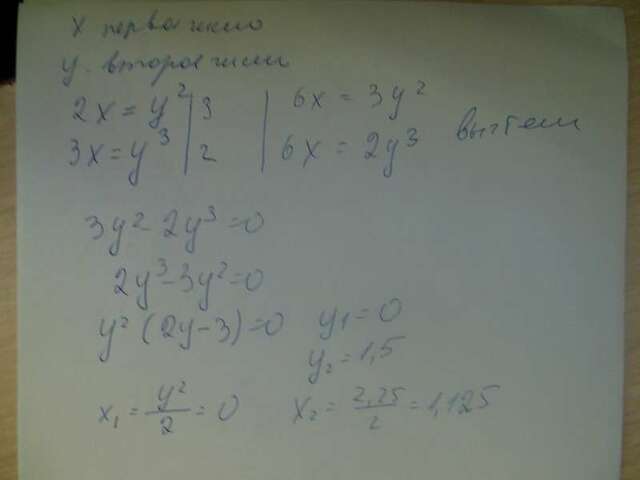 x первое число
y. второе число
2x = y² | 3 | 6x = 3y²
3x = y³ | 2 | 6x = 2y³ вычтем
3y² - 2y³ = 0
2y³ - 3y² = 0
y² (2y - 3) = 0 y₁ = 0
y₂ = 1,5
x₁ = y²/2 = 0 x₂ = 2,25/2 = 1,125